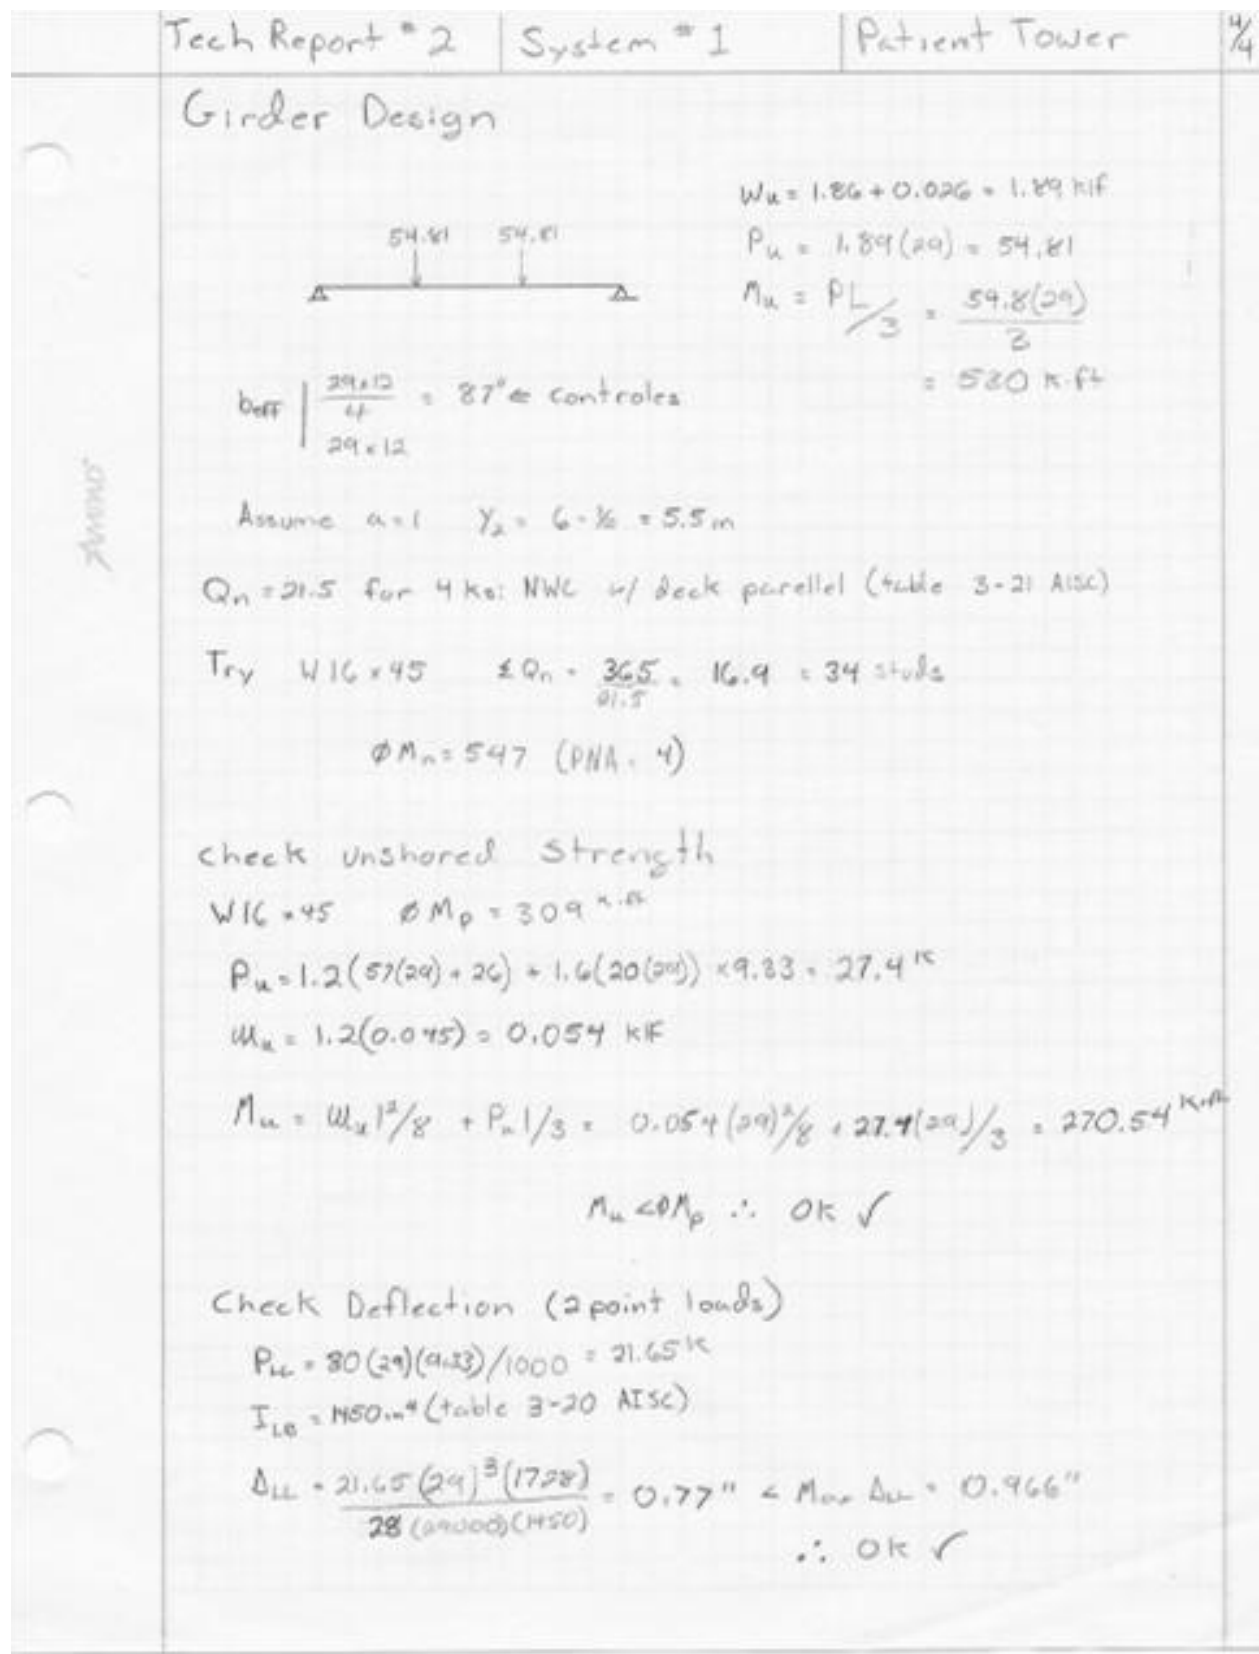 Tech Report #2 System #1 Patient Tower 4/4
Girder Design
Wu = 1.86 + 0.026 = 1.89 klf
54.81 54.81
Pu = 1.89(29) = 54.81
Mu = PL/3 = 54.8(29)/3
= 530 k-ft
beff | 29×12/4 = 87" ← controles
29×12
AMPAD
Assume a=1 Y2 = 6-½ = 5.5 in
Qn = 21.5 for 4 ksi NWC w/ deck parellel (table 3-21 AISC)
Try W16×45 ΣQn = 365/21.5 = 16.9 = 34 studs
ØMn = 547 (PNA = 4)
Check Unshored Strength
W16×45 ØMp = 309 k-ft
Pu = 1.2(57(29) + 26) + 1.6(20(29)) ×9.33 = 27.4 k
wu = 1.2(0.045) = 0.054 klf
Mu = wul²/8 + Pul/3 = 0.054(29)²/8 + 27.4(29)/3 = 270.54 k-ft
Mu < ØMp ∴ OK ✓
Check Deflection (2 point loads)
PLL = 80(29)(9.33)/1000 = 21.65 k
ILB = 1450 in⁴ (table 3-20 AISC)
ΔLL = 21.65(29)³(1728)/28(29000)(1450) = 0.77" < Max ΔLL = 0.966"
∴ OK ✓